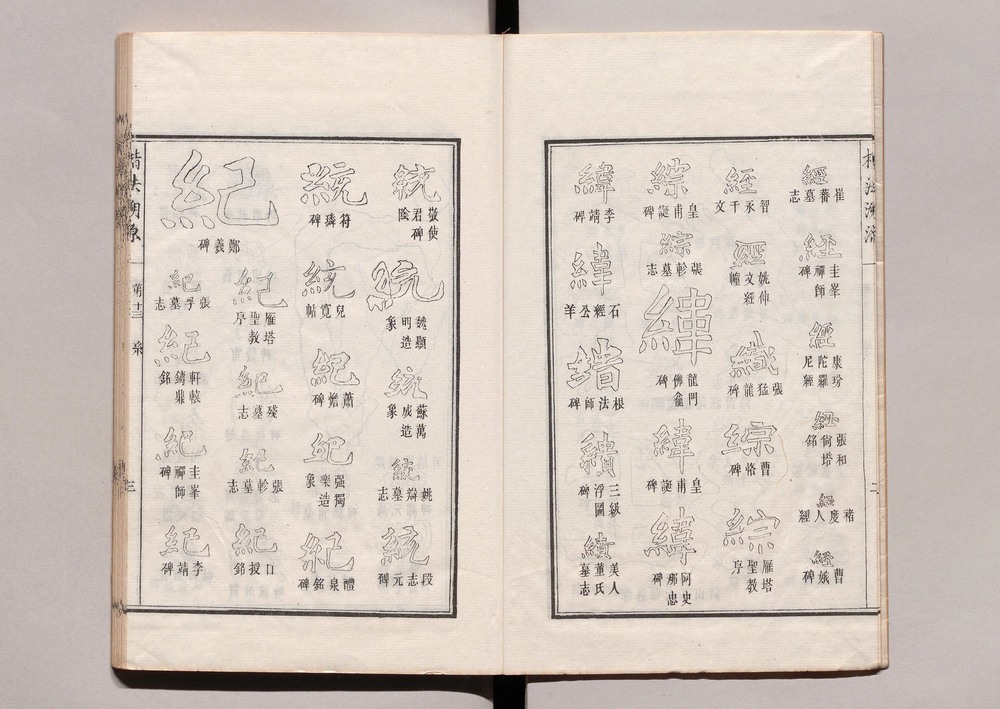 楷法溯源
二
經
崔蕃墓志
經
圭峯禪師碑
經
康玢陀羅尼經
經
張和尚塔銘
經
褚度人經
經
曹娥碑
經
智永千文
經
姚仲文經幢
織
張猛龍碑
綜
曹恪碑
綜
雁塔聖教序
綜
皇甫誕碑
綜
張軫墓志
緯
龍門佛龕碑
緯
皇甫誕碑
緯
阿史那忠碑
緯
李靖碑
緯
石經公羊
根法師碑
繢
三級浮圖碑
繢
美人董氏墓志
統
敬使君碑陰
統
魏顯明造象
統
蘇萬成造象
統
姚辯墓志
統
段志元碑
統
符璘碑
統
兒寬帖
紀
蕭憺碑
紀
强獨樂造象
紀
醴泉銘碑
紀
鄭羲碑
紀
雁塔聖教序
紀
殘墓志
紀
張軫墓志
紀
口授銘
紀
張孚墓志
紀
軒轅鑄鼎銘
紀
圭峯禪師碑
紀
李靖碑
楷法溯源
第十三
糸
三